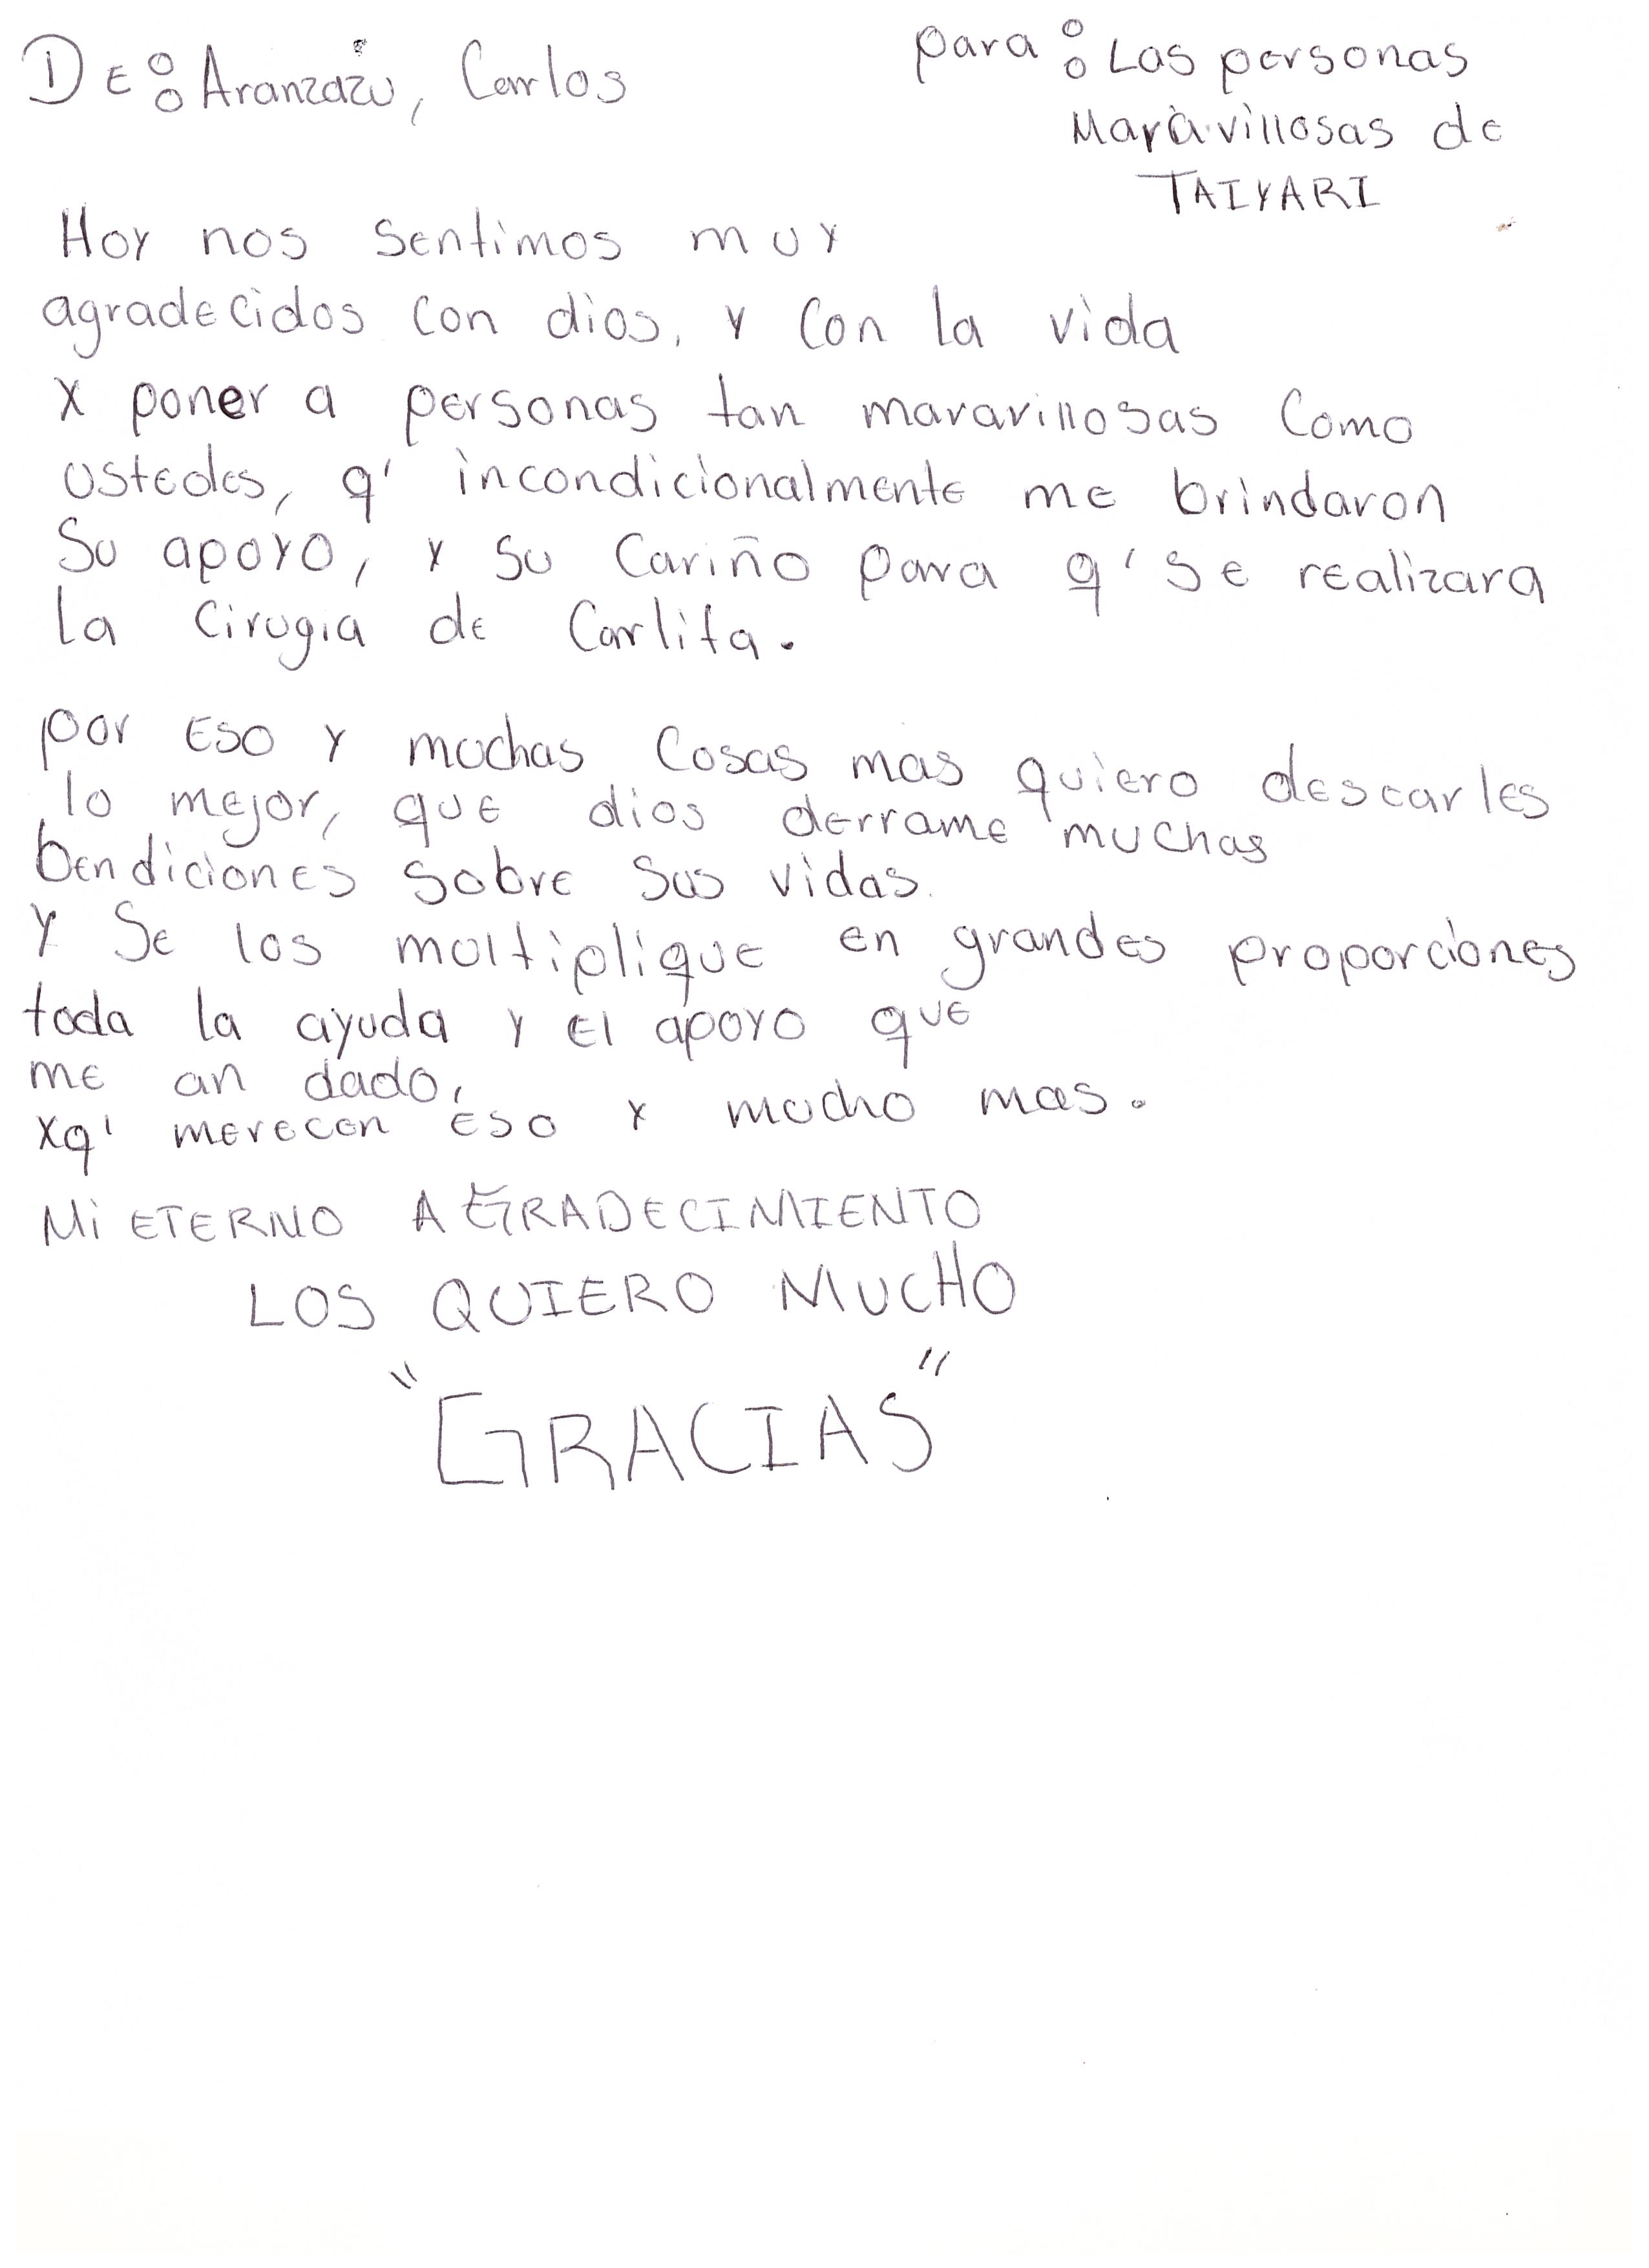 DE: Aranzazu, Carlos
para: Las personas
Maravillosas de
TAIYARI
Hoy nos sentimos muy
agradecidos con dios, y con la vida
x poner a personas tan maravillosas como
ustedes, q' incondicionalmente me brindaron
su apoyo, y su cariño para q' se realizara
la cirugia de Carlita.
por eso y muchas cosas mas quiero desearles
lo mejor, que dios derrame muchas
bendiciones sobre sus vidas.
Y se los moltiplique en grandes proporciones
toda la ayuda y el apoyo que
me an dado,
xq' merecen eso y mucho mas.
Mi ETERNO AGRADECIMIENTO
LOS QUIERO MUCHO
"GRACIAS"